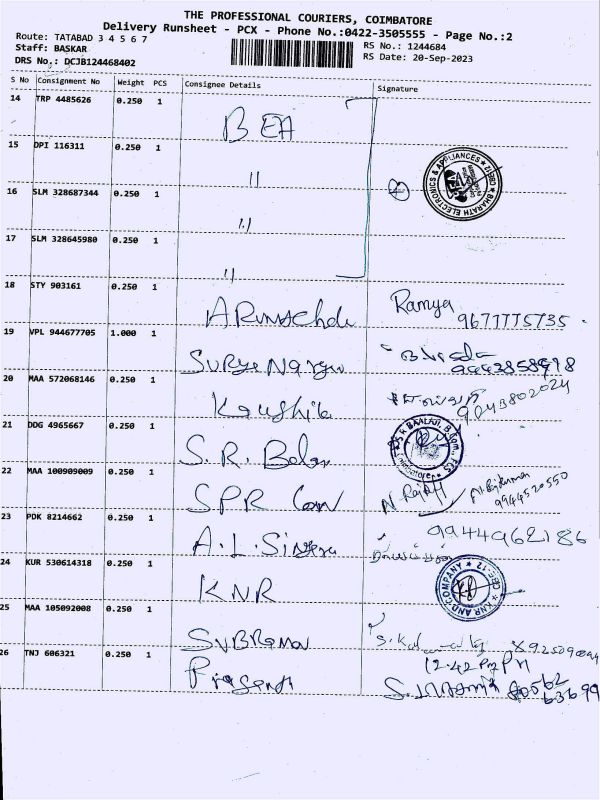 THE PROFESSIONAL COURIERS, COIMBATORE
Delivery Runsheet - PCX - Phone No.:0422-3505555 - Page No.:2
Route: TATABAD 3 4 5 6 7
RS No.: 1244684
Staff: BASKAR
RS Date: 20-Sep-2023
DRS No.: DCJB124468402
S No Consignment No Weight PCS Consignee Details Signature
14 TRP 4485626 0.250 1 B EA
15 DPI 116311 0.250 1 "
BHARATH ELECTRONICS & APPLIANCES
16 SLM 328687344 0.250 1 "
17 SLM 328645980 0.250 1 "
18 STY 903161 0.250 1 Ramya
9677775735
19 VPL 944677705 1.000 1
9443858918
20 MAA 572068146 0.250 1 Kaushik
9043802024
21 DDG 4965667 0.250 1 S. R. Balan
22 MAA 100909009 0.250 1 SPR
9944520550
23 PDK 8214662 0.250 1 A. L.
9944962186
24 KUR 530614318 0.250 1 KNR
KNR AND COMPANY
25 MAA 105092008 0.250 1
12.42 PM
26 TNJ 606321 0.250 1